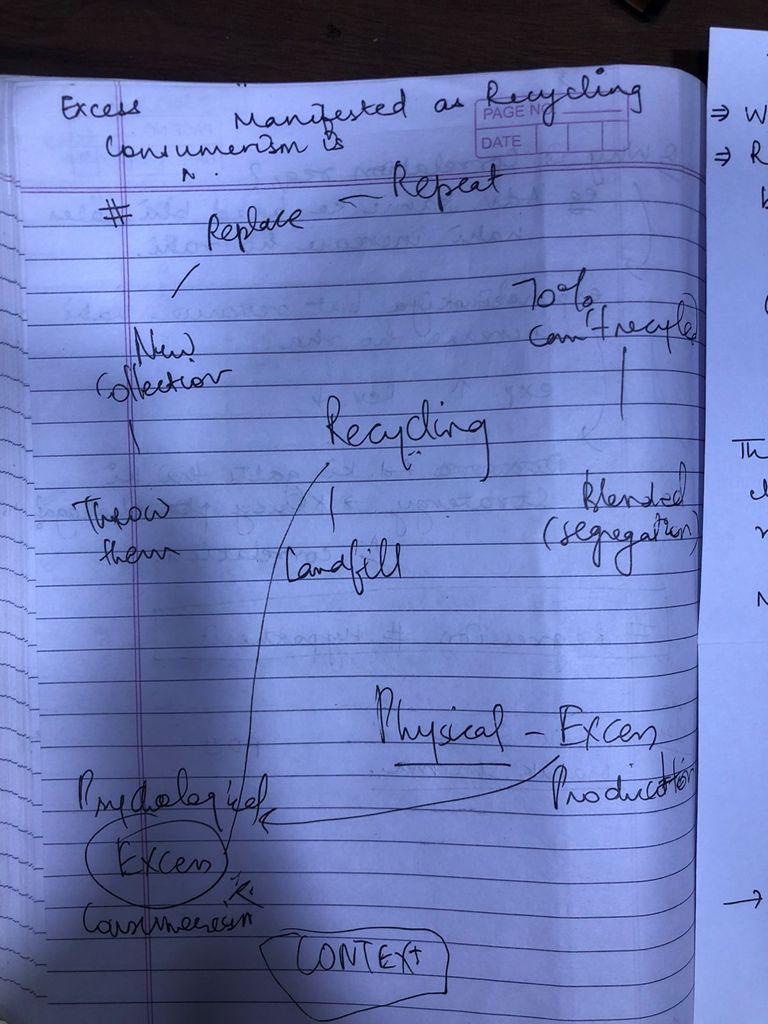 Excess Manifested as Recycling
Consumerism is
PAGE NO
DATE
#
Replace — Repeat
New
Collection
Throw
them
70%
can't recycled
Recycling
Landfill
Blended
(segregation)
Physical - Excess
Production
Psychological
Excess
Consumerism
CONTEXT
⇒ W
⇒ R
b
Th
N
→